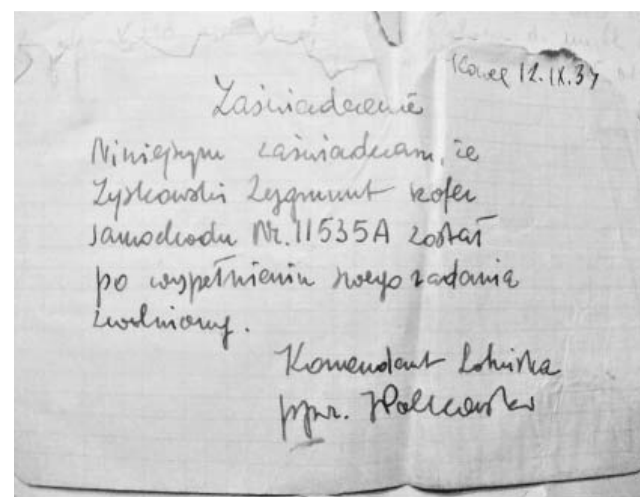 Kowel 12.IX.39
Zaświadczenie
Niniejszym zaświadczam, że
Zyskowski Zygmunt szofer
samochodu Nr. 11535A został
po wypełnieniu swego zadania
zwolniony.
Komendant Lotniska
ppor.